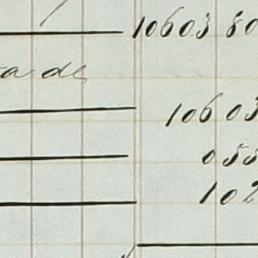 10603 80
ta de
10603
055
102